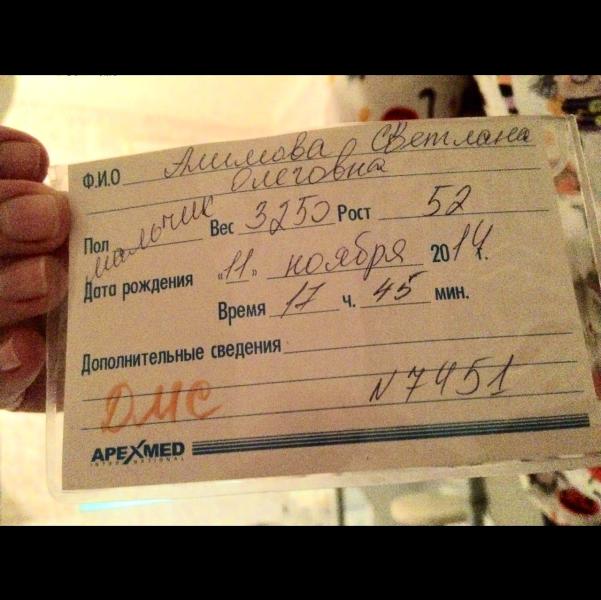 Ф.И.О Алимова Светлана
Олеговна
Пол мальчик Вес 3250 Рост 52
Дата рождения «11» ноября 2014 г.
Время 17 ч. 45 мин.
Дополнительные сведения
ДМС N7451
APEXMED
INTERNATIONAL